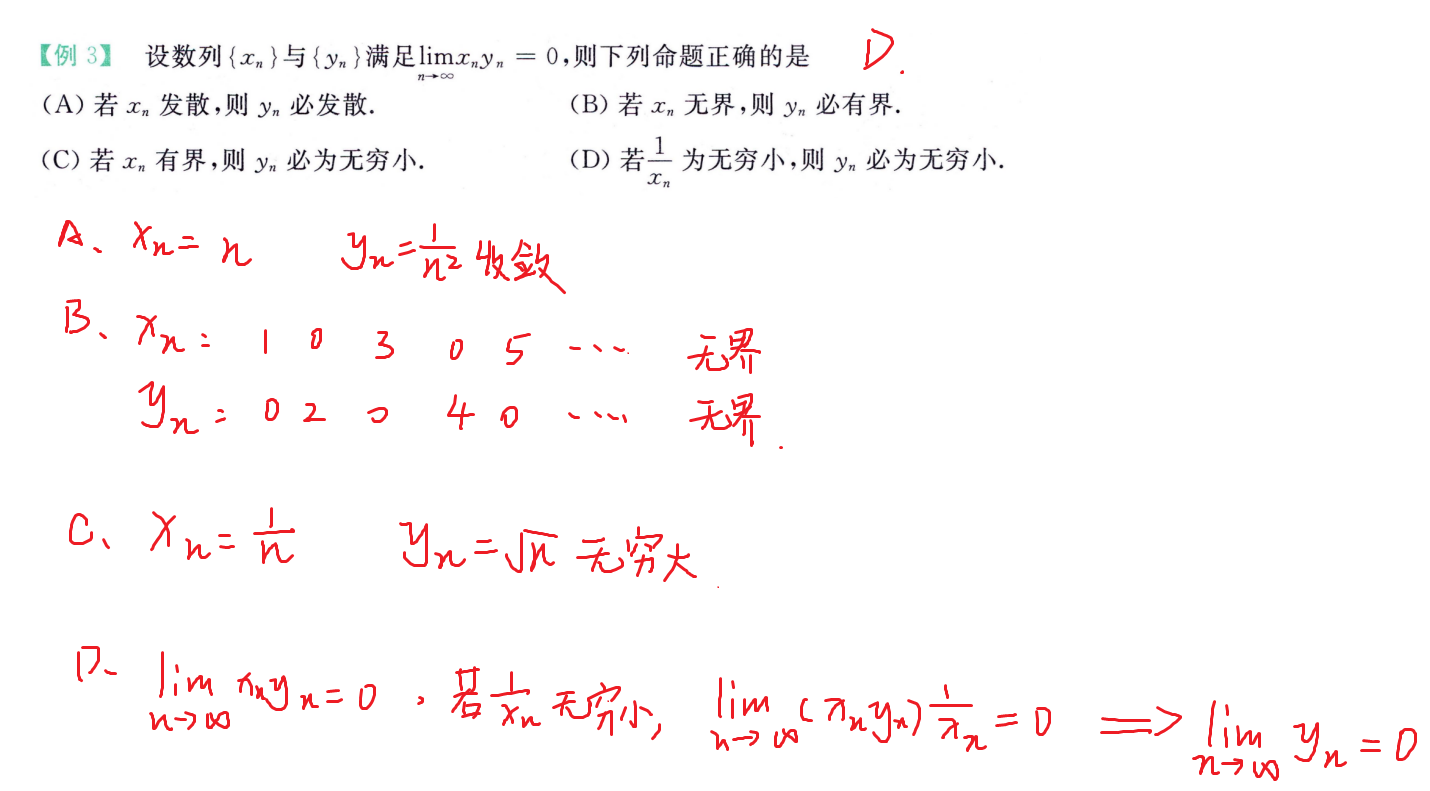 【例 3】 设数列{xₙ}与{yₙ}满足lim xₙyₙ = 0,则下列命题正确的是 D.
n→∞
(A) 若 xₙ 发散,则 yₙ 必发散. (B) 若 xₙ 无界,则 yₙ 必有界.
(C) 若 xₙ 有界,则 yₙ 必为无穷小. (D) 若 1/xₙ 为无穷小,则 yₙ 必为无穷小.
A、 xₙ = n yₙ = 1/n² 收敛
B、 xₙ: 1 0 3 0 5 ⋯ 无界
yₙ: 0 2 0 4 0 ⋯ 无界.
C、 xₙ = 1/n yₙ = √n 无穷大
D、 lim xₙyₙ = 0 , 若 1/xₙ 无穷小, lim (xₙyₙ) 1/xₙ = 0 ⟹ lim yₙ = 0
n→∞ n→∞ n→∞